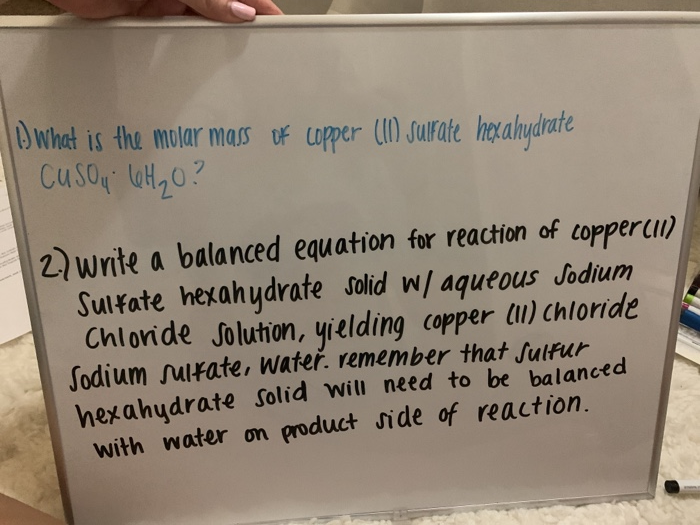 1.) What is the molar mass of copper (II) sulfate hexahydrate
CuSO₄· 6H₂O?
2.) Write a balanced equation for reaction of copper (II)
Sulfate hexahydrate solid w/ aqueous Sodium
Chloride Solution, yielding copper (II) chloride
Sodium sulfate, Water. remember that Sulfur
hexahydrate solid will need to be balanced
with water on product side of reaction.